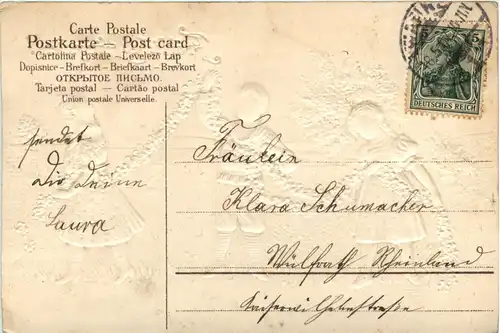 Carte Postale
Postkarte — Post card
Cartolina Postale — Levelezö Lap
Dopisnice — Brefkort — Briefkaart — Brevkort
ОТКРЫТОЕ ПИСЬМО.
Tarjeta postal — Cartão postal
Union postale Universelle.
5 5
DEUTSCHES REICH
sendet
Dir Deine
Laura
Fräulein
Klara Schumacher
Wülfrath Rheinland
Kaiserwilhelmstraße